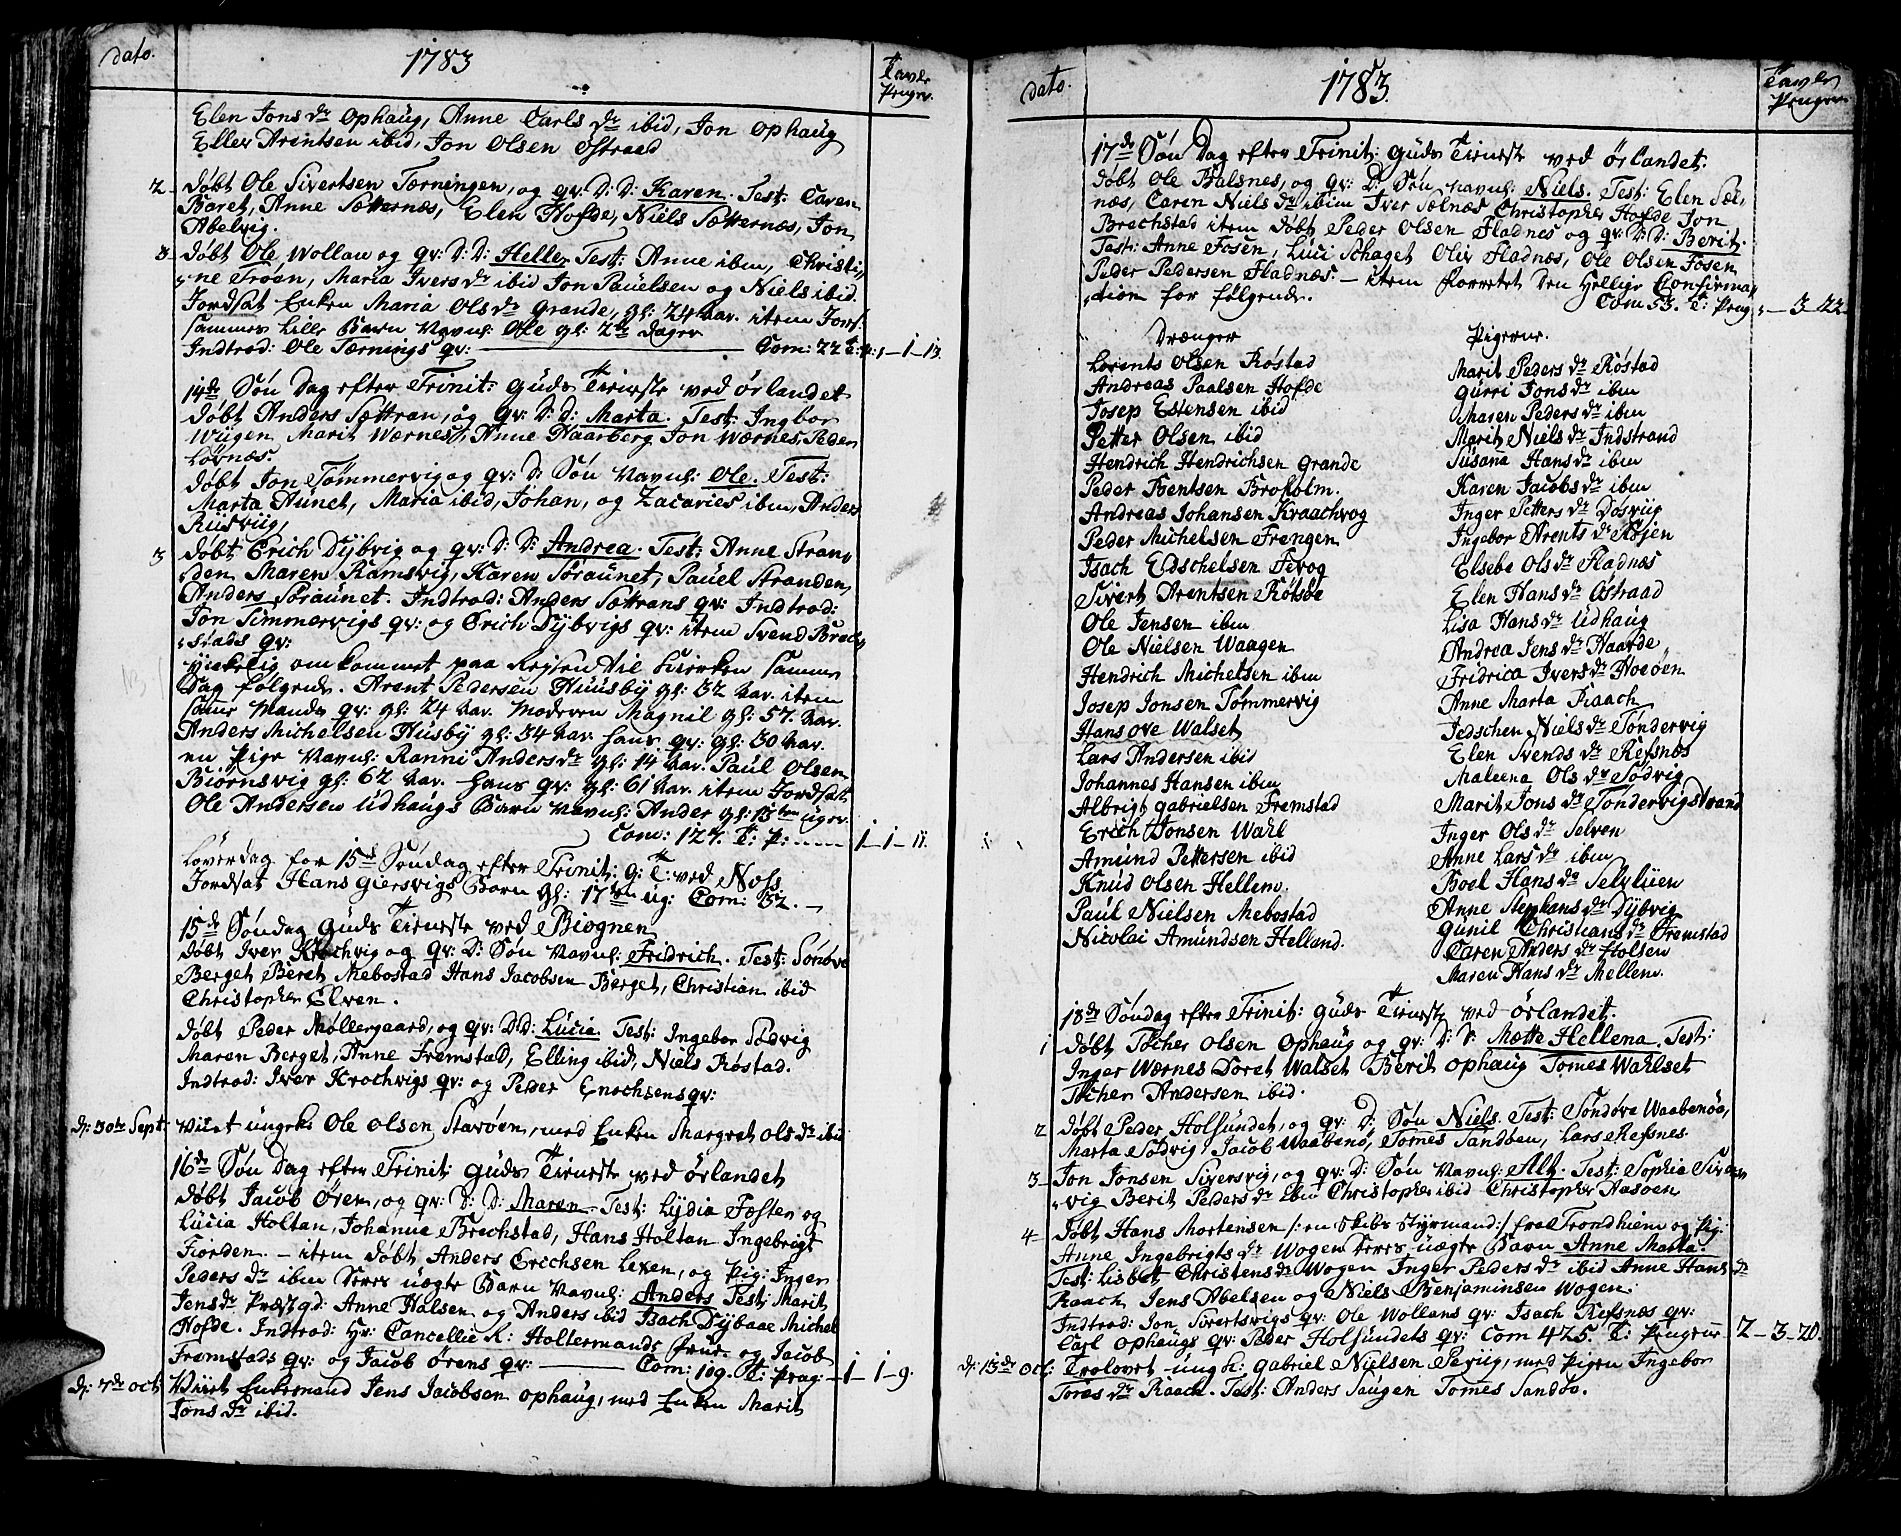 dato.
1783
Tavle
Penger.
Elen Jons dr Ophaug, Anne Carls dr ibid, Jon Ophaug
Eller Arentsen ibid, Jon Olsen Østraad
2 døbt Ole Sivertsen Tærningen, og qv: D: D: Karen. Test: Caren
Baret, Anne Sætternæs, Elen Hofde, Niels Sætternæs, Jon
Abelvig.
3 døbt Ole Wollan og qv: D: D: Helle. Test: Anne ibm, Christi,
,,ne Trøen, Maria Ivers dr ibid Jon Pauelsen og Niels ibid.
Jordsat Enken Maria Ols dr Grande, gl: 24 Aar. item Jords:
sammes lille Barn Navnl: Ole gl: 2de Dager
Indtrod: Ole Tærnings qv: Com: 22 T: p: 1-13
14de Søn Dag efter Trinit: Guds Tieneste ved Ørlandet
døbt Anders Sættran, og qv: D: D: Marta. Test: Ingbor
Wiigen Marit Wærnes, Anne Haarberg Jon Wærnes, Peder
Lørnæs.
døbt Jon Tømmervig og qv: D: Søn Navnl: Ole. Test:
Marta Aunet, Maria ibid, Johan, og Zacaries ibm, Anders
Riisviig,
3 døbt Erich Dybvig og qv: D: D: Andrea. Test: Anne Stran,
,,den Maren Ramsvig, Karen Søraunet, Pauel Stranden,
Anders Søraunet. Indtrod: Anders Sættrans qv: Indtrod:
Jon Timmervigs qv: og Erich Dybvigs qv: item Svend Brech,
,,stads qv:
Ynkelig omkommet paa Rejsen til Kierken samme
Dag følgende. Arent Pedersen Huusby gl: 32 Aar. item
samme Mands qv: gl: 24 Aar. Moderen Magnil gl: 57. Aar.
Anders Michelsen Husby gl: 34 Aar hans qv: gl: 30 Aar.
en Pige Navnl: Ranni Anders dr gl: 14 Aar. Paul Olsen
Biørnsvig gl: 62 Aar. hans qv: gl: 61 Aar. item Jordsat
Ole Andersen Udhaugs Barn Navnl: Ander gl: 13ten uger.
Com: 127. T: P: 1-1-11.
Løverdag for 15de Søndag efter Trinit: G: T: ved Næss
Jordsat Hans Giersvigs Barn gl: 17ten ug: Com: 32.
15de Søndag Guds Tieneste ved Biognen
døbt Iver Krochvig og qv: D: Søn Navnl: Fridrich. Test: Sønøve
Berget Beret Mebostad Hans Jacobsen Berget, Christian ibid
Christopher Elven.
døbt Peder Møllergaard, og qv: D: D: Lucia. Test: Ingebor Sødvig
Maren Berget, Anne Fremstad, Elling ibid, Niels Røstad.
Indtrod: Iver Krochvigs qv: og Peder Enochsens qv:
D: 30te Sept: Viiet ungek: Ole Olsen Starøen, med Enken Margret Ols dr ibid
16de Søn Dag efter Trinit: Guds Tieneste ved Ørlandet
døbt Jacob Ören, og qv: D: D: Maren. Test: Lydia Fæsten og
Lucia Holtan, Johanna Brechstad, Hans Holtan Ingebrigt
Fiorden. - item døbt Anders Erechsen Lexen, og Pig: Inger
Peders dr ibm deres uægte Barn Navnl: Anders Test: Marit
Jens dr Præstgd: Anne Halsen og Anders ibid Isach Dybaae Michel
Hofde. Indtrod: Hr: Cancellie R: Holtermands Frue. og Jacob
Fremstads qv: og Jacob Örens qv: Com: 109. T: Peng: 1-1-9.
D: 7de oct: Viiet Enkemand Jens Jacobsen Ophaug, med Enken Marit
Jons dr ibid.
dato.
1783.
Tavle
Penger
17de Søn Dag efter Trinit: Guds Tieneste ved Ørlandet:
døbt Ole Balsnes, og qv: D: Søn Navnl: Niels. Test: Elen Sæl,
næs, Caren Niels dr ibm Iver Sælnæs Christopher Hofde Jon
Brechstad item døbt Peder Olsen Fladnes og qv: D: D: Berit.
Test: Anne Fosen, Luci Schaget Oliv Fladnæs, Ole Olsen Fosen
Peder Pedersen Fladnæs. - item Forrettet den Hellige Confirma,
,,tion for følgende.
Com 53. T: Peng: - 3-22
Drænger
Lorents Olsen Røstad
Andreas Paalsen Hofde
Josep Estensen ibid
Petter Olsen ibid
Hendrich Hendrichsen Grande
Peder Bentsen Brokolm.
Andreas Johansen Kraachvog
Peder Michelsen Frengen
Isach Edschelsen Fevog
Sivert Arentsen Røtsøe
Ole Jensen ibm
Ole Nielsen Waagen
Hendrich Michelsen ibm
Josep Jonsen Tømmervig
Hans Ove Walset
Lars Andersen ibid
Johannes Hansen ibm
Albrigt Gabrielsen Fremstad
Erich Jonsen Wahl
Amund Pettersen ibid
Knud Olsen Hellem.
Paul Nielsen Mebostad
Nicolai Amundsen Helland.
Pigerne.
Marit Peders dr Røstad
Gurri Jons dr ibm
Maren Peders dr ibm
Marit Niels dr Indstrand
Susana Hans dr ibm
Karen Jacobs dr ibm
Inger Petters dr Dosviig
Ingebor Arents dr Røjen
Elsebe Ols dr Fladnæs
Elen Hans dr Østraad
Lisa Hans dr Udhaug
Andrea Jens dr Haarde
Fridrica Ivers dr Hoeøen
Anne Marta Raach
Jedschen Niels dr Tøndervig
Elen Svends dr Refsnæs
Maleena Ols dr Sødvig
Marit Jons dr Tøndervigstrand
Inger Ols dr Selven
Anne Lars dr ibm
Boel Hans dr Selvliien
Anne Stephans dr Dybvig
Gunil Christians dr Fremstad
Caren Anders dr Holsen
Maren Hans dr Mellem.
18de Søndag efter Trinit: Guds Tieneste ved Ørlandet.
1 døbt Tøcher Olsen Ophaug og qv: D: D: Mætte Hellena. Test:
Inger Wærnes Doret Walset Berit Ophaug Tomes Wahlset
Tøcher Andersen ibid.
2 døbt Peder Holssundet, og qv: D: Søn Niels. Test: Sønøve Waabenøe,
Marta Sødvig Jacob Waabenø, Tomes Sandben, Lars Refsnes.
3 Jon Jonsen Siversvig, og qv: D: Søn Navnl: Alf. Test: Sophia Siver,
,,vig Berit Peders dr ibm Christopher ibid Christopher Aasøen
4 døbt Hans Mortensen /: en Skibs Styrmand:/ fra Trondhiem og Pig:
Anne Ingebrigts dr Wogen deres uægte Barn Anne Marta.
Test: Lisbet Christens dr Wogen Inger Peders dr ibid Anne Hans dr
Raach Jens Abelsen og Niels Benjaminsen Wogen.
Indtrod: Jon Sivertsvigs qv: Ole Wollans qv: Isach Refsnæs qv:
Carl Ophaugs qv: Peder Holsundets qv: Com 425. T: Pengene 2-3-20.
D: 13de Oct: Trolovet ungk: Gabriel Nielsen Reviig, med Pigen Ingebor
Tores dr Raach. Test: Anders Haugen Tomes Sandøe.